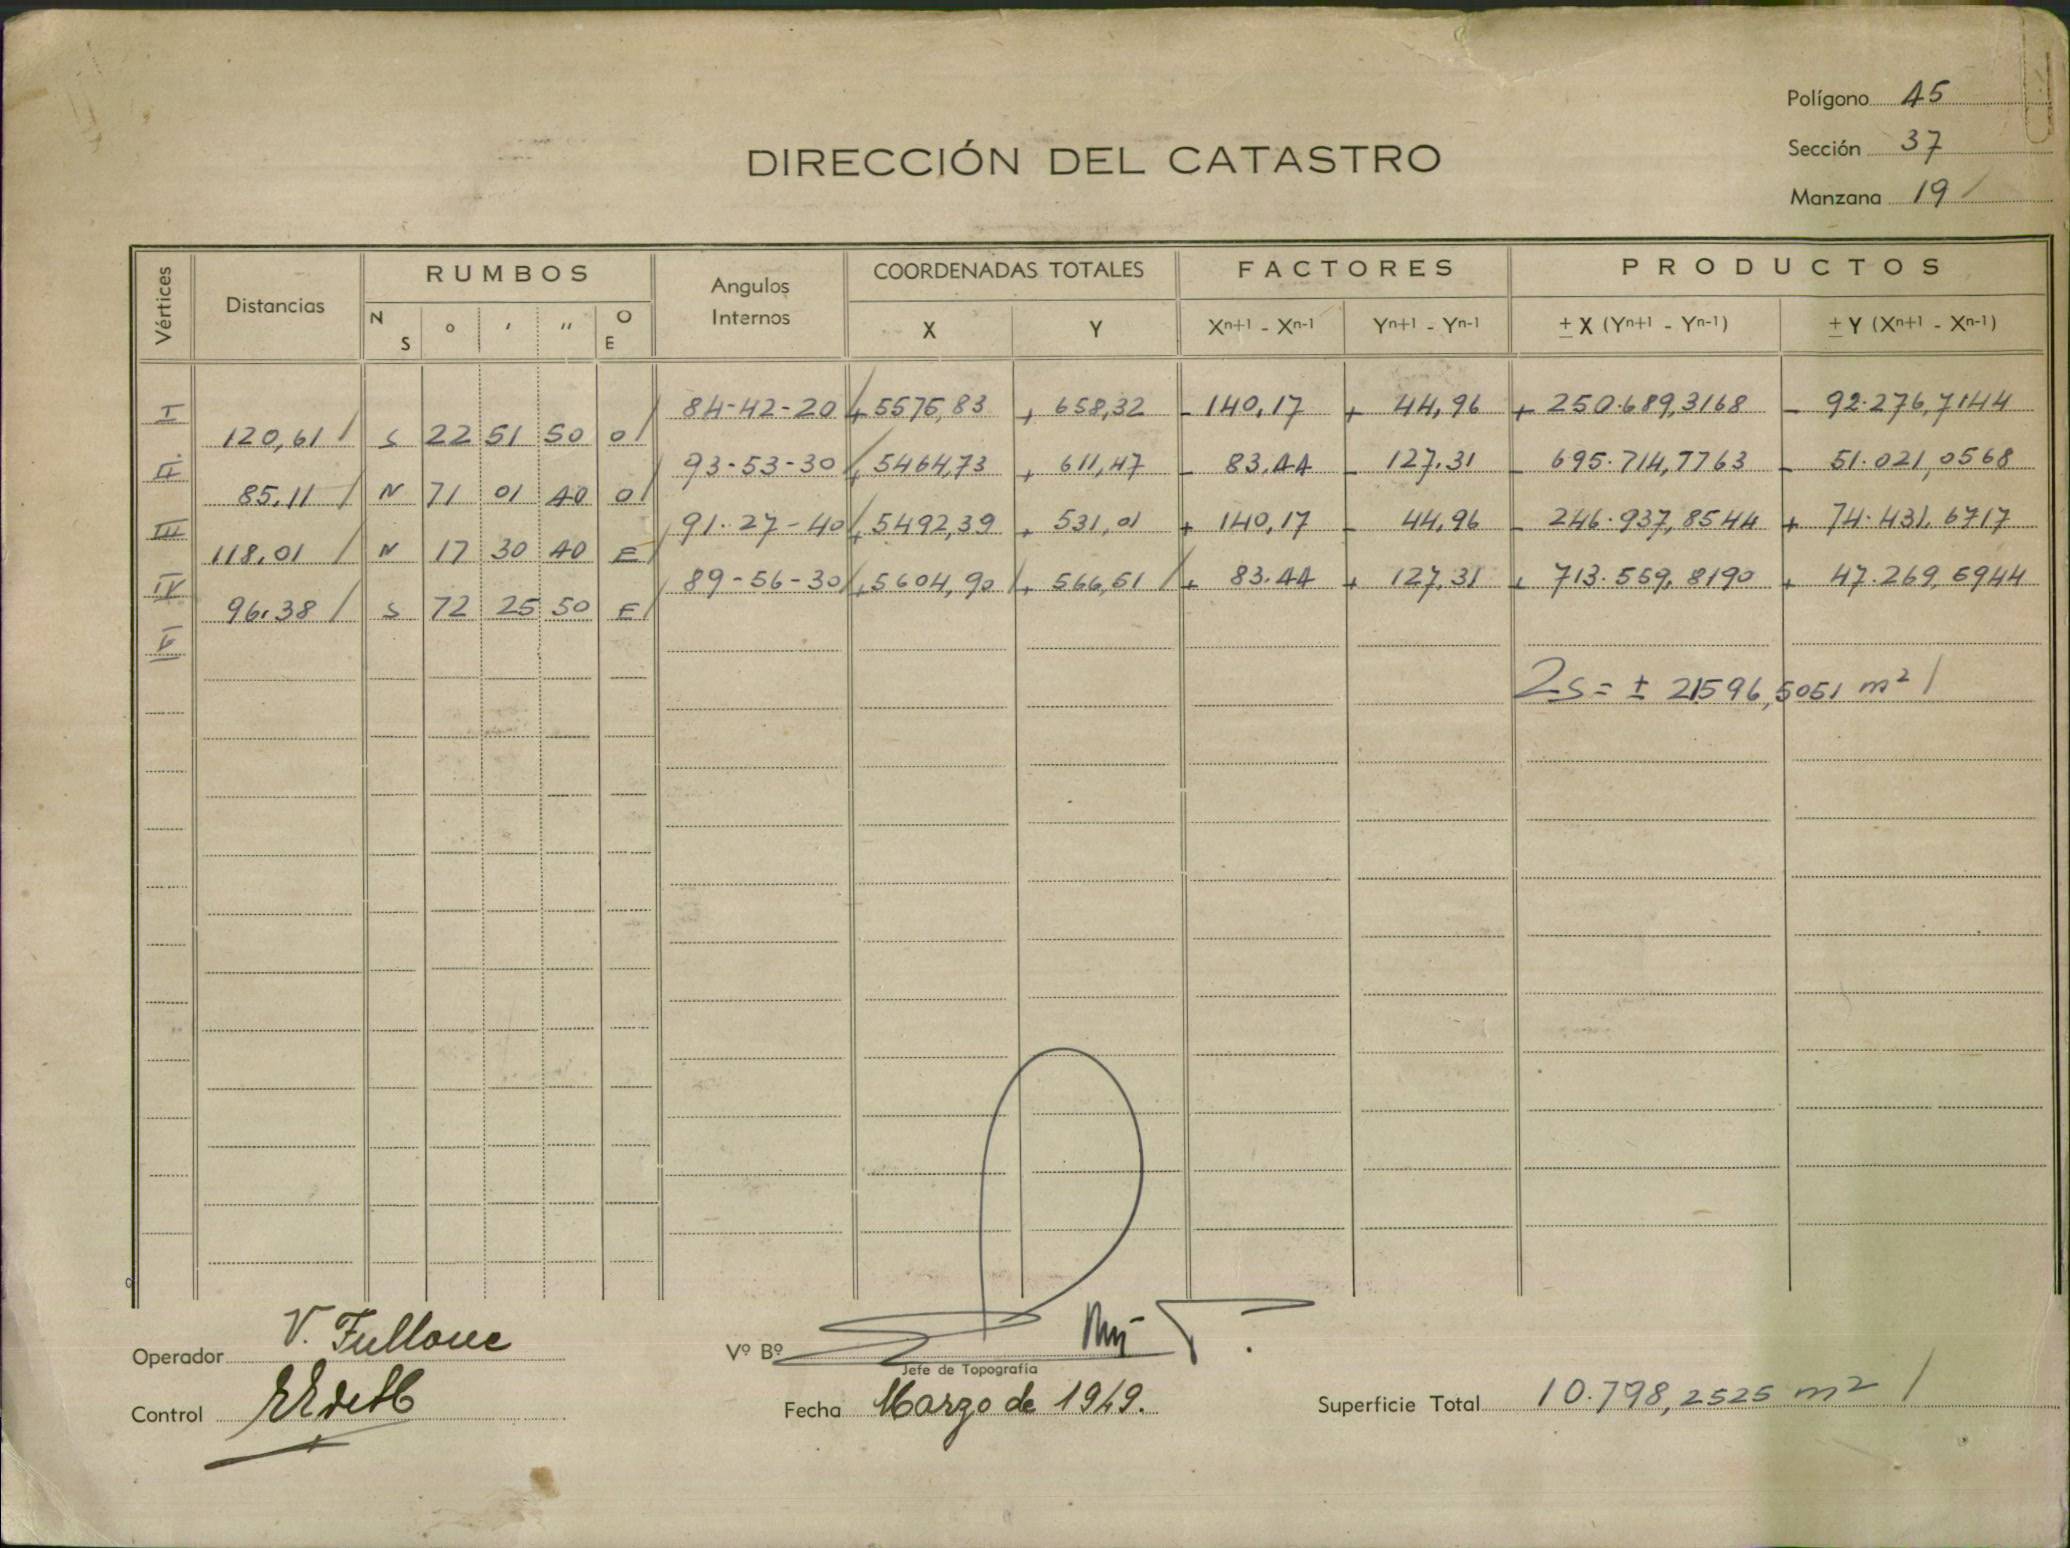 Polígono 45
Sección 37
Manzana 19 /
DIRECCIÓN DEL CATASTRO
Vértices Distancias RUMBOS Angulos Internos COORDENADAS TOTALES FACTORES PRODUCTOS
N S o ' '' O E X Y Xn+1 - Xn-1 Yn+1 - Yn-1 ± X (Yn+1 - Yn-1) ± Y (Xn+1 - Xn-1)
I 84-42-20 +5575,83 + 658,32 - 140,17 + 44,96 + 250.689,3168 - 92.276,7144
120,61 / S 22 51 50 O /
II 93-53-30 +5464,73 + 611,47 - 83,44 - 127,31 - 695.714,7763 - 51.021,0568
85,11 / N 71 01 40 O /
III 91-27-40 +5492,39 + 531,01 + 140,17 - 44,96 - 246.937,8544 + 74.431,6717
118,01 / N 17 30 40 E /
IV 89-56-30 +5604,90 + 566,51 / + 83,44 + 127,31 + 713.559,8190 + 47.269,5944
96,38 / S 72 25 50 E /
V
2s = ± 21596,5051 m² /
Operador V. Fullone
Vº Bº
Jefe de Topografía
Control
Fecha Marzo de 1949.
Superficie Total 10.798,2525 m² /